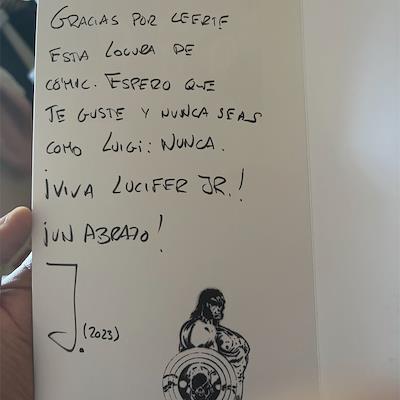 GRACIAS POR LEERTE
ESTA LOCURA DE
CÓMIC. ESPERO QUE
TE GUSTE Y NUNCA SEAS
COMO LUIGI: NUNCA.
¡VIVA LUCIFER JR.!
¡UN ABRAZO!
J. (2023)